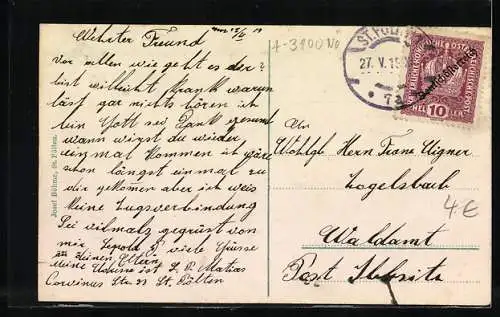 am 12/6 19
Wehrter Freund
Vor allen wie geht es der?
bist villeicht Krank warum
läst gar nichts hören ich
bin Gott sei Dank gesund
wann wirst du wieder
einmal kommen ich wäre
schon längst einmal zu
dir gekomen aber ich weis
keine Zugsverbindung
Sei vilmalz gegrüst von
mir Leopold P viele Grüsse
an deinen Eltern
meine ist L. P. Matias
Corvinus Str. 23 St. Pölten
Josef Böhme, St. Pölten.
A-3100 No
ST. PÖLTEN
27. V. 19
* 7a
DEUTSCHÖSTERREICH
10
HELLER
An
Wohlgb. Herrn Franz Aigner
Zogelsbach
Waldamt
Post
4 €